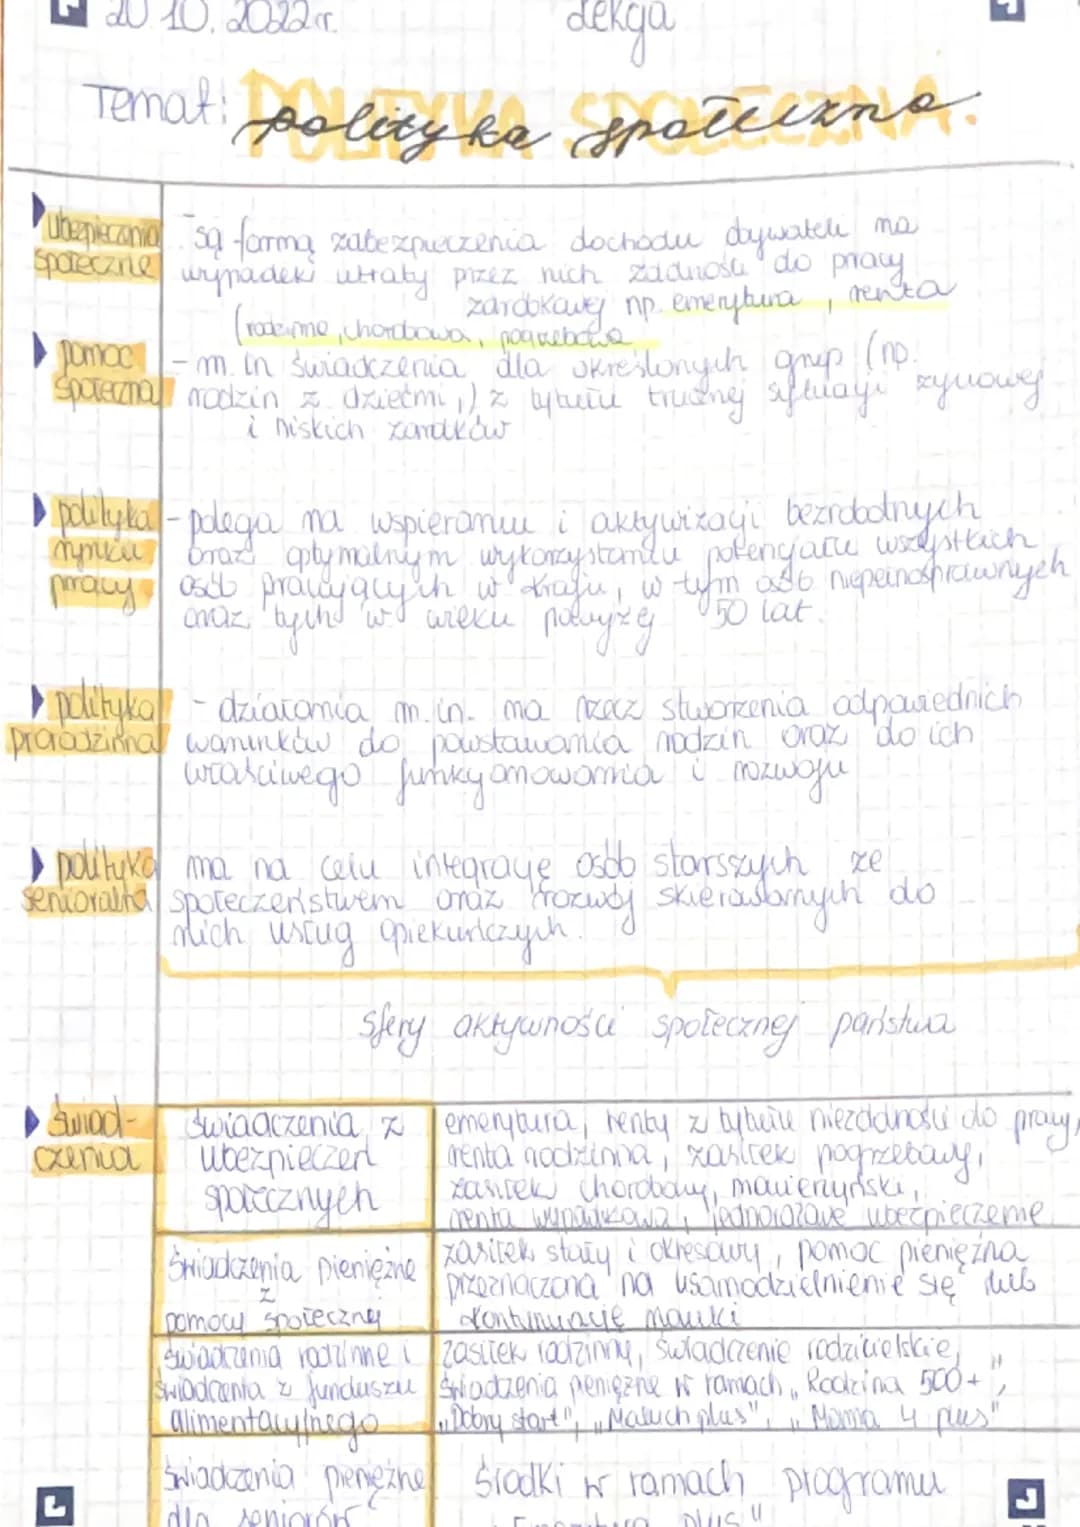 20.10.2022r. Lekcja
Temat: POLITYKA SPOŁECZNA.
polityka społeczna
ubezpieczenia społeczne
- są formą zabezpieczenia dochodu obywateli na
wypadek utraty przez nich zdolności do pracy
zarobkowej np. emerytura, renta
(rodzinne, chorobowa, pogrzebowa
pomoc społeczna
- m.in świadczenia dla określonych grup (np.
rodzin z dziećmi,) z tytułu trudnej sytuacji życiowej
i niskich zarobków
polityka rynku pracy
- polega na wspieraniu i aktywizacji bezrobotnych
oraz optymalnym wykorzystaniu potencjału wszystkich
osób pracujących w kraju, w tym osób niepełnosprawnych
oraz tych w wieku powyżej 50 lat.
polityka prorodzinna
- działania m.in. na rzecz stworzenia odpowiednich
warunków do powstawania rodzin oraz do ich
właściwego funkcjonowania i rozwoju
polityka senioralna
ma na celu integrację osób starszych ze
społeczeństwem oraz rozwój skierowanych do
nich usług opiekuńczych.
sfery aktywności społecznej państwa
świad-
czenia
świadczenia z
ubezpieczeń
społecznych
emerytura, renty z tytułu niezdolności do pracy,
renta rodzinna, zasiłek pogrzebowy,
zasiłek chorobowy, macierzyński,
renta wypadkowa, jednorazowe ubezpieczenie
świadczenia pieniężne
z
pomocy społecznej
zasiłek stały i okresowy, pomoc pieniężna
przeznaczona na usamodzielnienie się lub
kontynuację nauki
świadczenia rodzinne i
świadczenia z funduszu
alimentacyjnego
zasiłek rodzinny, świadczenie rodzicielskie,
świadczenia pieniężne w ramach „Rodzina 500+",
„Dobry start", „Maluch plus", „Mama 4 plus"
świadczenia pieniężne
dla seniorów
środki w ramach programu
plus"